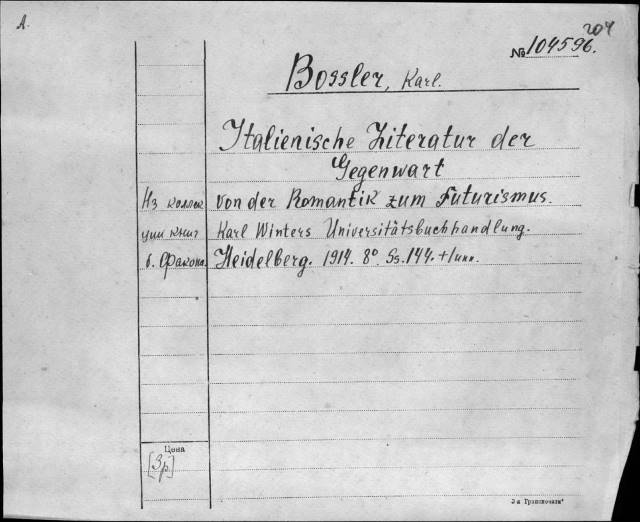 A.
204
№ 104596.
Bossler, Karl.
Italienische Literatur der
Gegenwart
Из коллек von der Romantik zum Futurismus.
ции книг Karl Winters Universitätsbuchhandlung.
б. Heidelberg. 1914. 8° Ss. 144. +1
Цена
[3р]
3-я